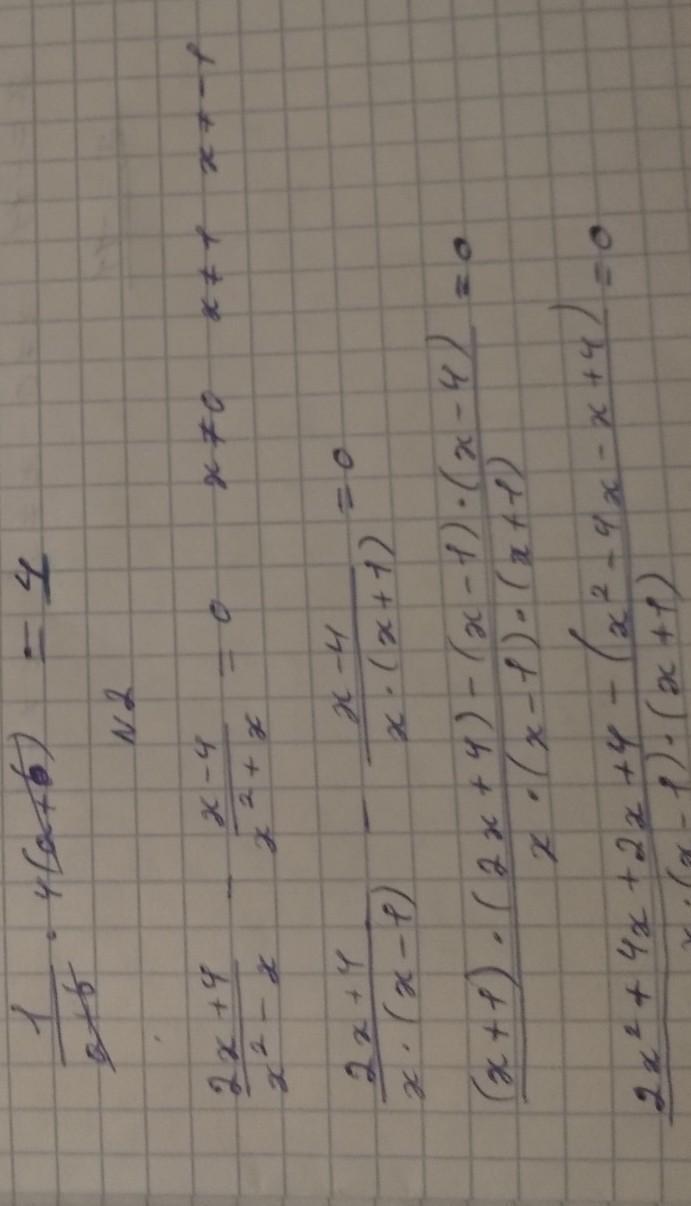 1/(a+b) · 4(a+b) = 4
N2
(2x+4)/(x²-x) - (x-4)/(x²+x) = 0 x≠0 x≠1 x≠-1
(2x+4)/(x·(x-1)) - (x-4)/(x·(x+1)) = 0
((x+1)·(2x+4)-(x-1)·(x-4))/(x·(x-1)·(x+1)) = 0
(2x²+4x+2x+4-(x²-4x-x+4))/(x·(x-1)·(x+1)) = 0